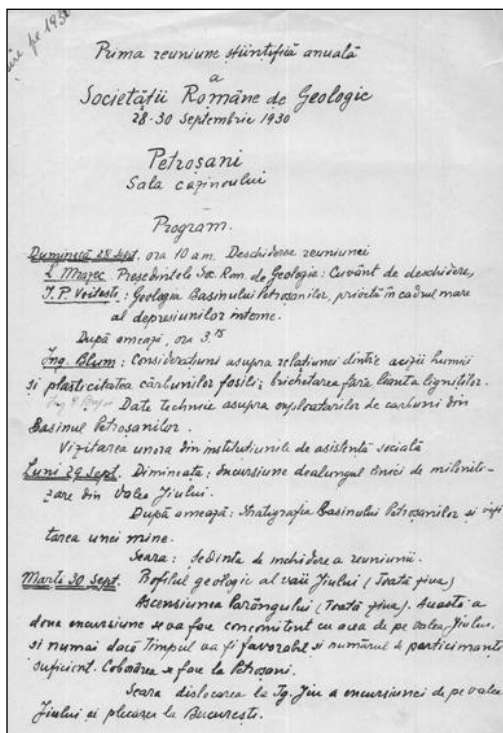 pe 1930
Prima reuniune științifică anuală
a
Societății Române de Geologie
28-30 Septembrie 1930
Petroșani
Sala cazinoului
Program.
Duminecă 28 Sept. ora 10 a.m. Deschiderea reuniunei
L. Mrazec. Președintele Soc. Rom. de Geologie: Cuvânt de deschidere,
I. P. Voitești: Geologia Basinului Petroșanilor, privită în cadrul mare
al depresiunilor interne.
După ameazi, ora 3.15
Ing. Blum: Considerațiuni asupra relațiunei dintre acizii humici
și plasticitatea cărbunilor fosili; brichetarea fără liantu lignitilor.
Ing. Date technice asupra exploatărilor de cărbuni din
Basinul Petroșanilor.
Vizitarea unora din instituțiunile de asistență socială
Luni 29 Sept. Dimineața: Excursiune dealungul liniei de miloniti-
zare din Valea Jiului.
După amează: Stratigrafia Basinului Petroșanilor și vizi
tarea unei mine.
Seara: Ședința de închidere a reuniunii.
Marți 30 Sept. Profilul geologic al văii Jiului (Toată ziua)
Ascensiunea Parângului (Toată ziua). Această a
doua excursiune se va face concomitent cu acea de pe valea Jiului,
și numai dacă timpul va fi favorabil și numărul de participanți
suficient. Coborârea se face la Petroșani.
Seara dislocarea la Tg. Jiu a excursiunei de pe valea
Jiului și plecarea la București.